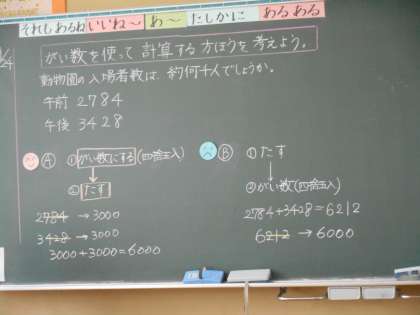 それもあるね いいね～ あ～ たしかに あるある
がい数を使って計算する方ほうを考えよう。
動物園の入場者数は、約何千人でしょうか。
午前 2784
午後 3428
Ⓐ ①がい数にする(四捨五入)
②たす
2784 → 3000
3428 → 3000
3000+3000=6000
Ⓑ ①たす
②がい数(四捨五入)
2784+3428=6212
6212 → 6000